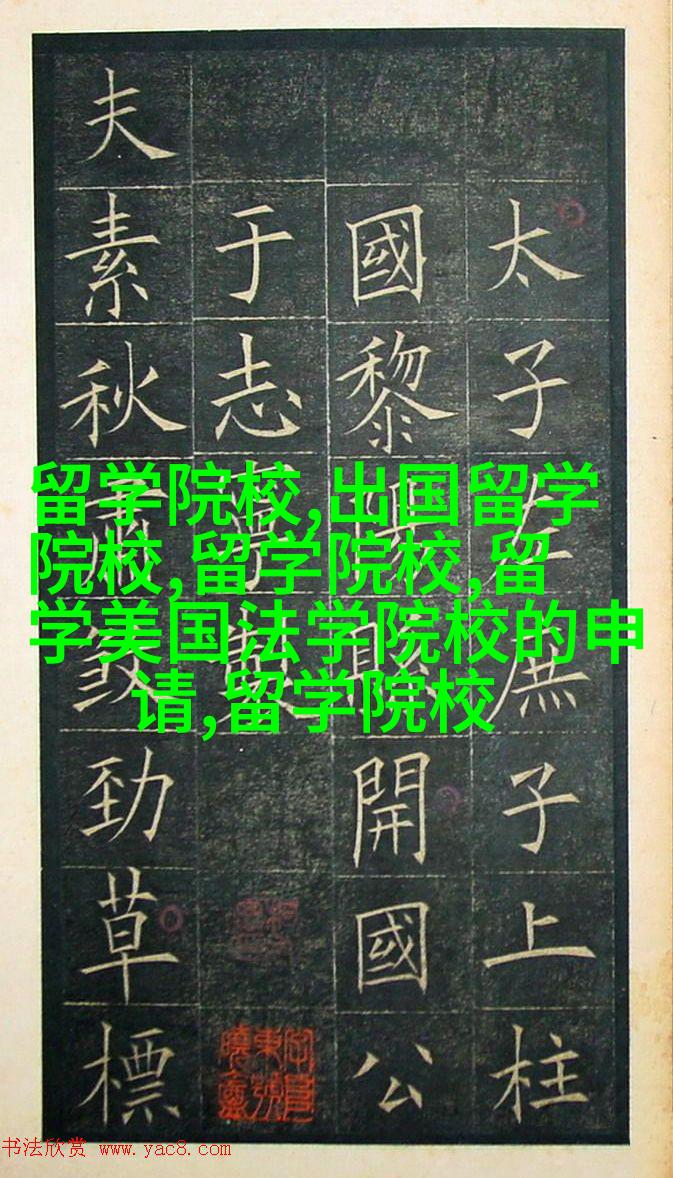 太子左庶子上柱
國黎陽縣開國公
于志寧製
夫素秋肅煞勁草標
留学院校,出国留学
院校,留学院校,留
学美国法学院校的申
请,留学院校
书法欣赏 www.yac8.com